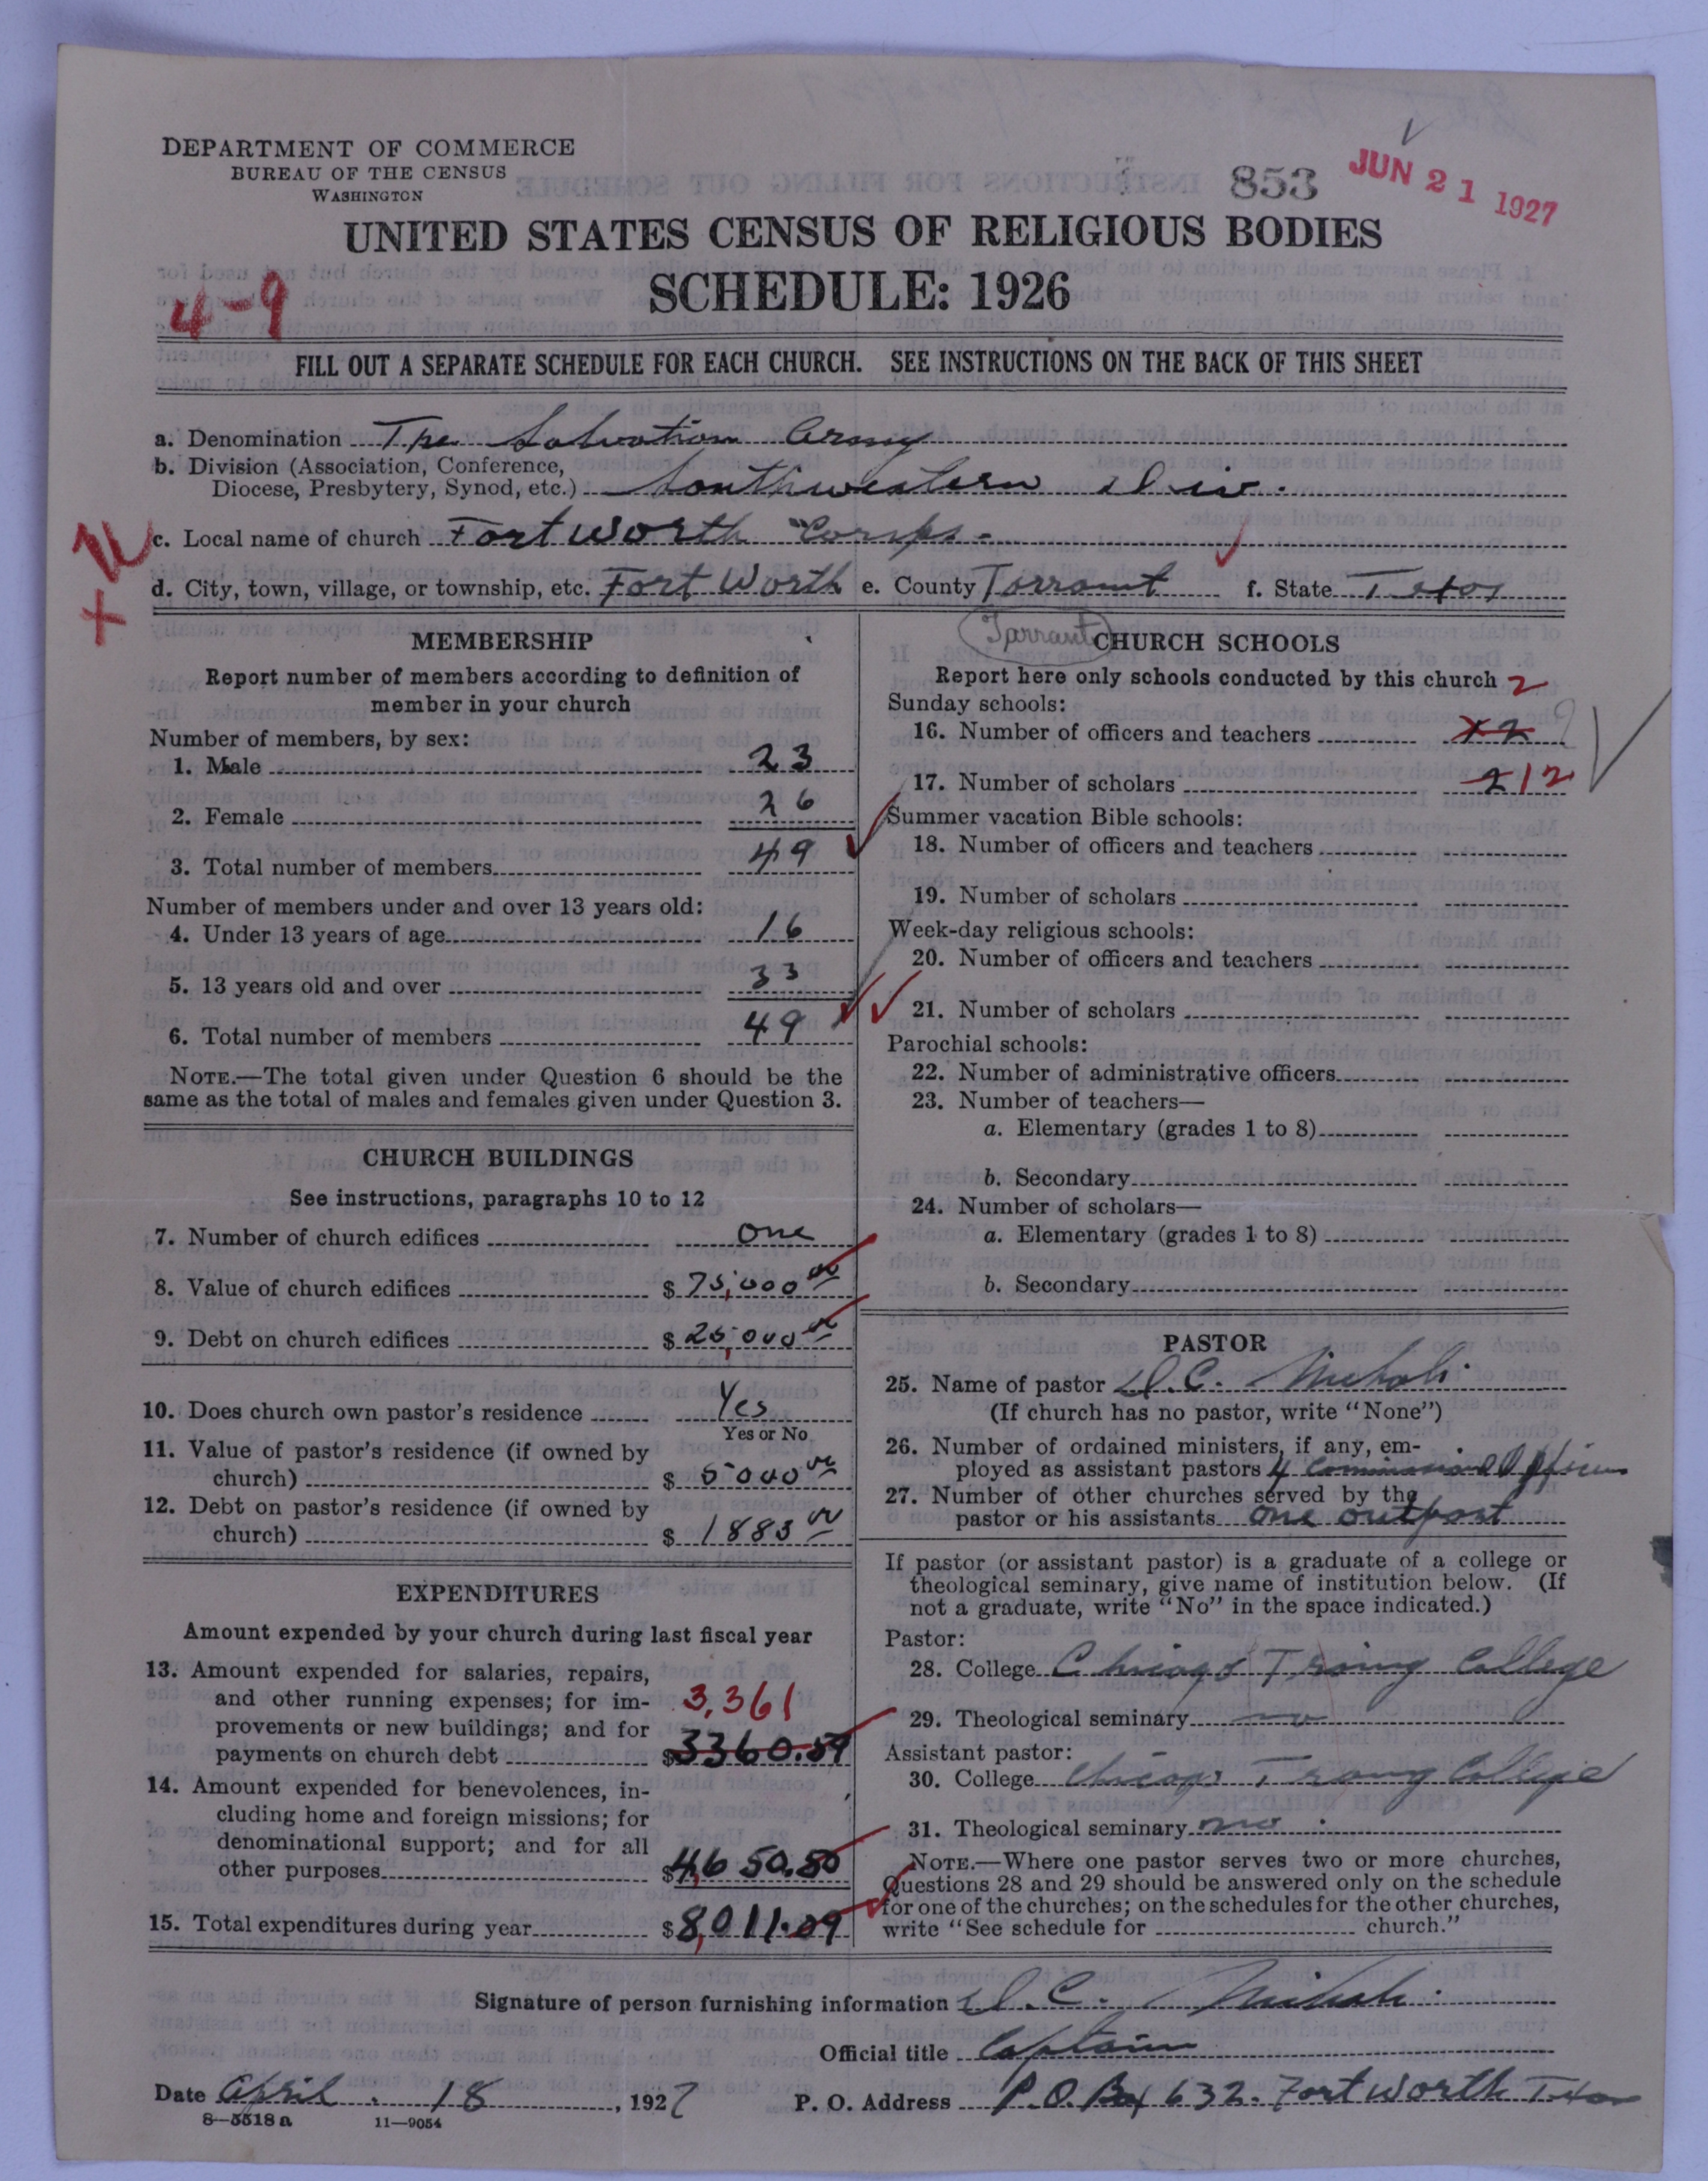 DEPARTMENT OF COMMERCE
BUREAU OF THE CENSUS
WASHINGTON
853
JUN 21 1927
UNITED STATES CENSUS OF RELIGIOUS BODIES
SCHEDULE: 1926
4-9
FILL OUT A SEPARATE SCHEDULE FOR EACH CHURCH. SEE INSTRUCTIONS ON THE BACK OF THIS SHEET
a. Denomination The Salvation Army
b. Division (Association, Conference,
Diocese, Presbytery, Synod, etc.) Southwestern Div.
c. Local name of church Fort Worth "Corps.
d. City, town, village, or township, etc. Fort Worth e. County Tarrant f. State Texas
Tarrant
MEMBERSHIP
Report number of members according to definition of
member in your church
Number of members, by sex:
1. Male 23
2. Female 26
3. Total number of members 49
Number of members under and over 13 years old:
4. Under 13 years of age 16
5. 13 years old and over 33
6. Total number of members 49
NOTE.—The total given under Question 6 should be the
same as the total of males and females given under Question 3.
CHURCH BUILDINGS
See instructions, paragraphs 10 to 12
7. Number of church edifices one
8. Value of church edifices $75,000 00
9. Debt on church edifices $25,000 00
10. Does church own pastor's residence Yes
Yes or No
11. Value of pastor's residence (if owned by
church) $5000 00
12. Debt on pastor's residence (if owned by
church) $1883 00
EXPENDITURES
Amount expended by your church during last fiscal year
13. Amount expended for salaries, repairs,
and other running expenses; for im-
provements or new buildings; and for
payments on church debt
3,361
$3360.59
14. Amount expended for benevolences, in-
cluding home and foreign missions; for
denominational support; and for all
other purposes $4,650.50
15. Total expenditures during year $8,011.09
CHURCH SCHOOLS
Report here only schools conducted by this church 2
Sunday schools:
16. Number of officers and teachers 2
17. Number of scholars 2 12
Summer vacation Bible schools:
18. Number of officers and teachers
19. Number of scholars
Week-day religious schools:
20. Number of officers and teachers
21. Number of scholars
Parochial schools:
22. Number of administrative officers
23. Number of teachers—
a. Elementary (grades 1 to 8)
b. Secondary
24. Number of scholars—
a. Elementary (grades 1 to 8)
b. Secondary
PASTOR
25. Name of pastor D.C. Nichols
(If church has no pastor, write "None")
26. Number of ordained ministers, if any, em-
ployed as assistant pastors 4 Commissioned Officers
27. Number of other churches served by the
pastor or his assistants one outpost
If pastor (or assistant pastor) is a graduate of a college or
theological seminary, give name of institution below. (If
not a graduate, write "No" in the space indicated.)
Pastor:
28. College Chicago Traing College
29. Theological seminary no
Assistant pastor:
30. College Chicago Traing College
31. Theological seminary no
NOTE.—Where one pastor serves two or more churches,
Questions 28 and 29 should be answered only on the schedule
for one of the churches; on the schedules for the other churches,
write "See schedule for church."
Signature of person furnishing information D.C. Nichols.
Official title Captain
Date April. 18, 1927 P. O. Address P.O. Box 632. Fort Worth Texas
8—5518 a 11—9054